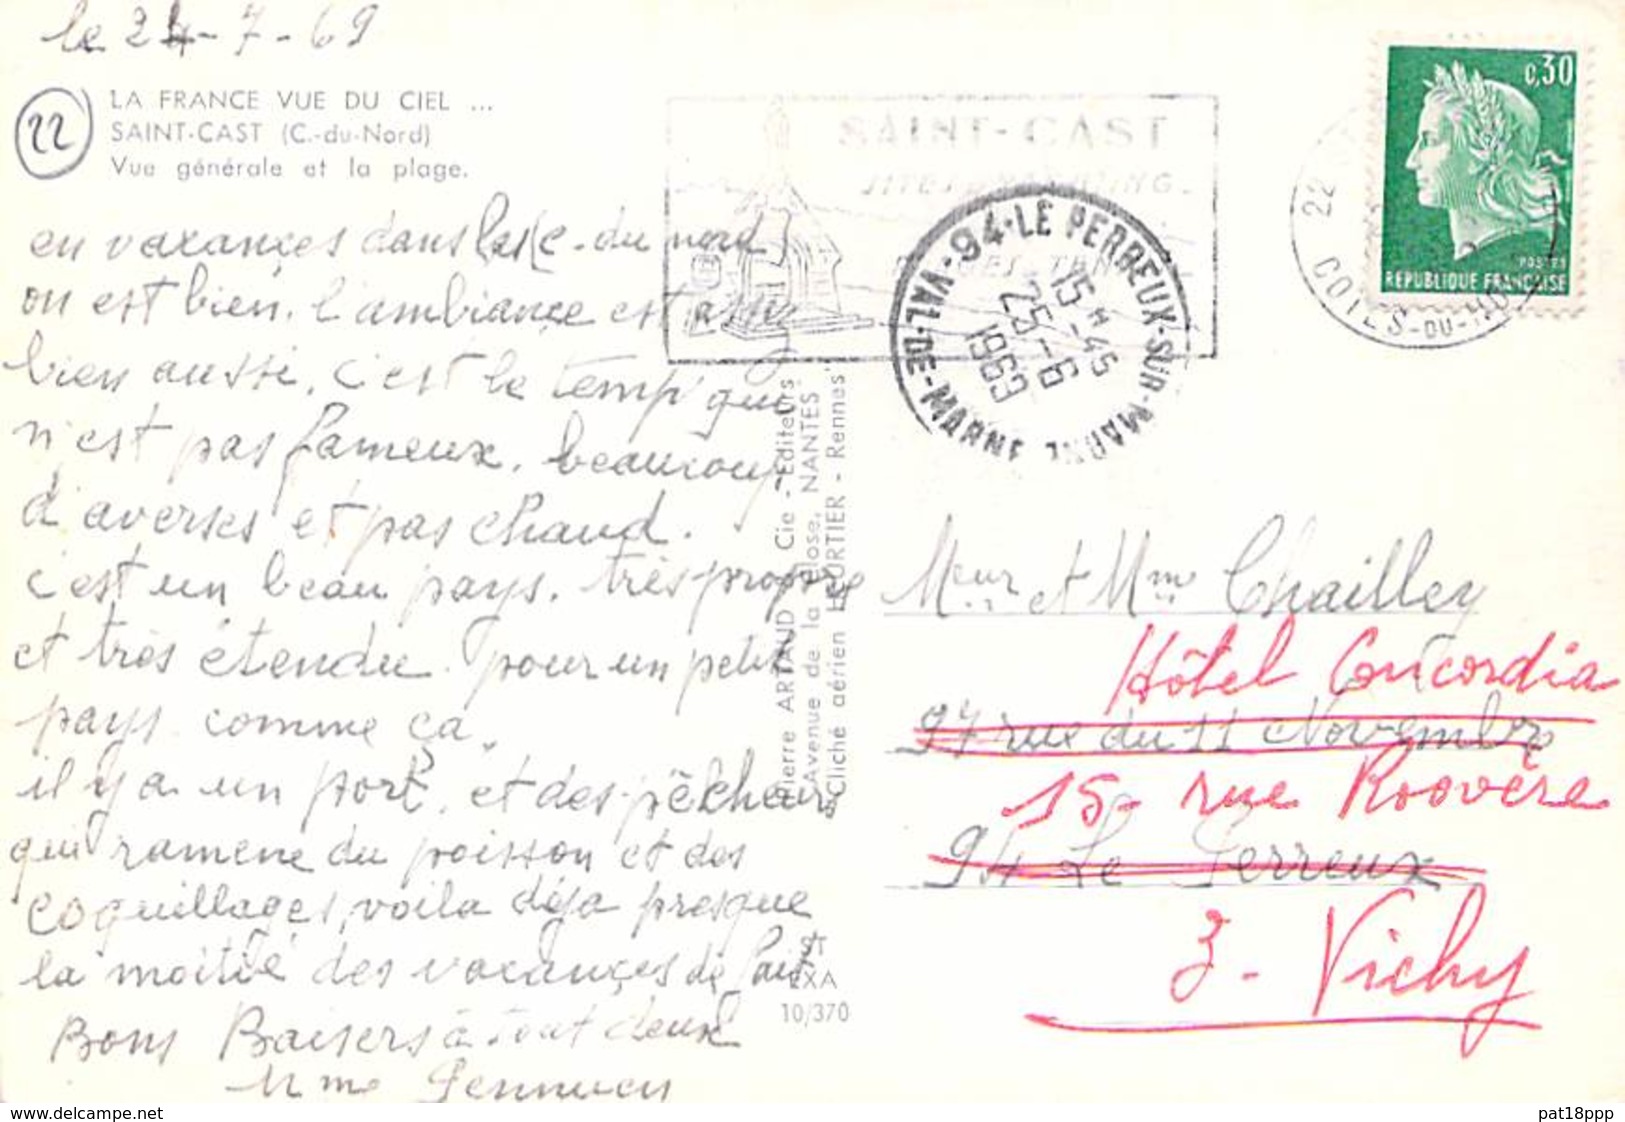 le 24-7-69
22
LA FRANCE VUE DU CIEL ...
SAINT-CAST (C.-du-Nord)
Vue générale et la plage.
en vacançes dans les (c. du nord)
on est bien. l'ambiançe est assez
bien aussi, c'est le temp qui
n'est pas fameux. beaucoup
d'averses et pas chaud.
c'est un beau pays. très propre
et très étendu. pour un petit
pays comme ça.
il y a un port. et des pêcheurs
qui ramene du poisson et des
coquillages, voila déja presque
la moitié des vacançes de fait
Bons Baisers à tout deux
Mme
Pierre ARTAUD Cie - Editeurs
Avenue de la Close, NANTES
Cliché aérien HEURTIER - Rennes
ST
EXA
10/370
SAINT-CAST
94-LE PERREUX-SUR-MARNE
VAL-DE-MARNE
15 H -45
25 -6
1969
22
COTES-DU-NORD
0,30
POSTES
REPUBLIQUE FRANÇAISE
Meur et Mme Chailley
Hôtel Concordia
97 rue du 11 Novembre
15 rue Roovère
94 Le Perreux
3 - Vichy
www.delcampe.net
pat18ppp